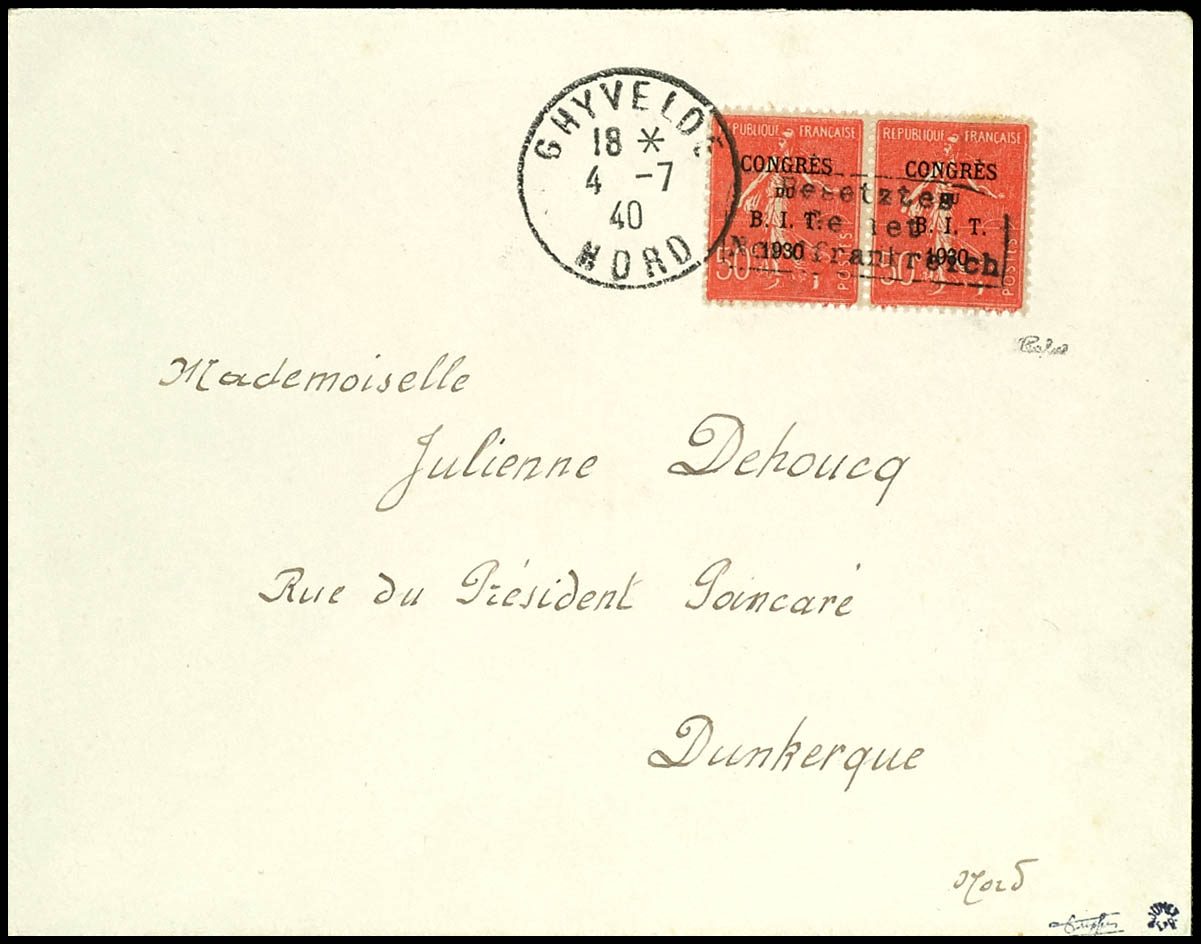 GHYVELDE
18 *
4 -7
40
NORD
REPUBLIQUE FRANÇAISE
CONGRÈS
DU
B. I. T.
1930
50c
POSTES
REPUBLIQUE FRANÇAISE
CONGRÈS
DU
B. I. T.
1930
50c
POSTES
Besetztes
Gebiet
Nordfrankreich
Mademoiselle
Julienne Dehoucq
Rue du Président Poincaré
Dunkerque
Nord